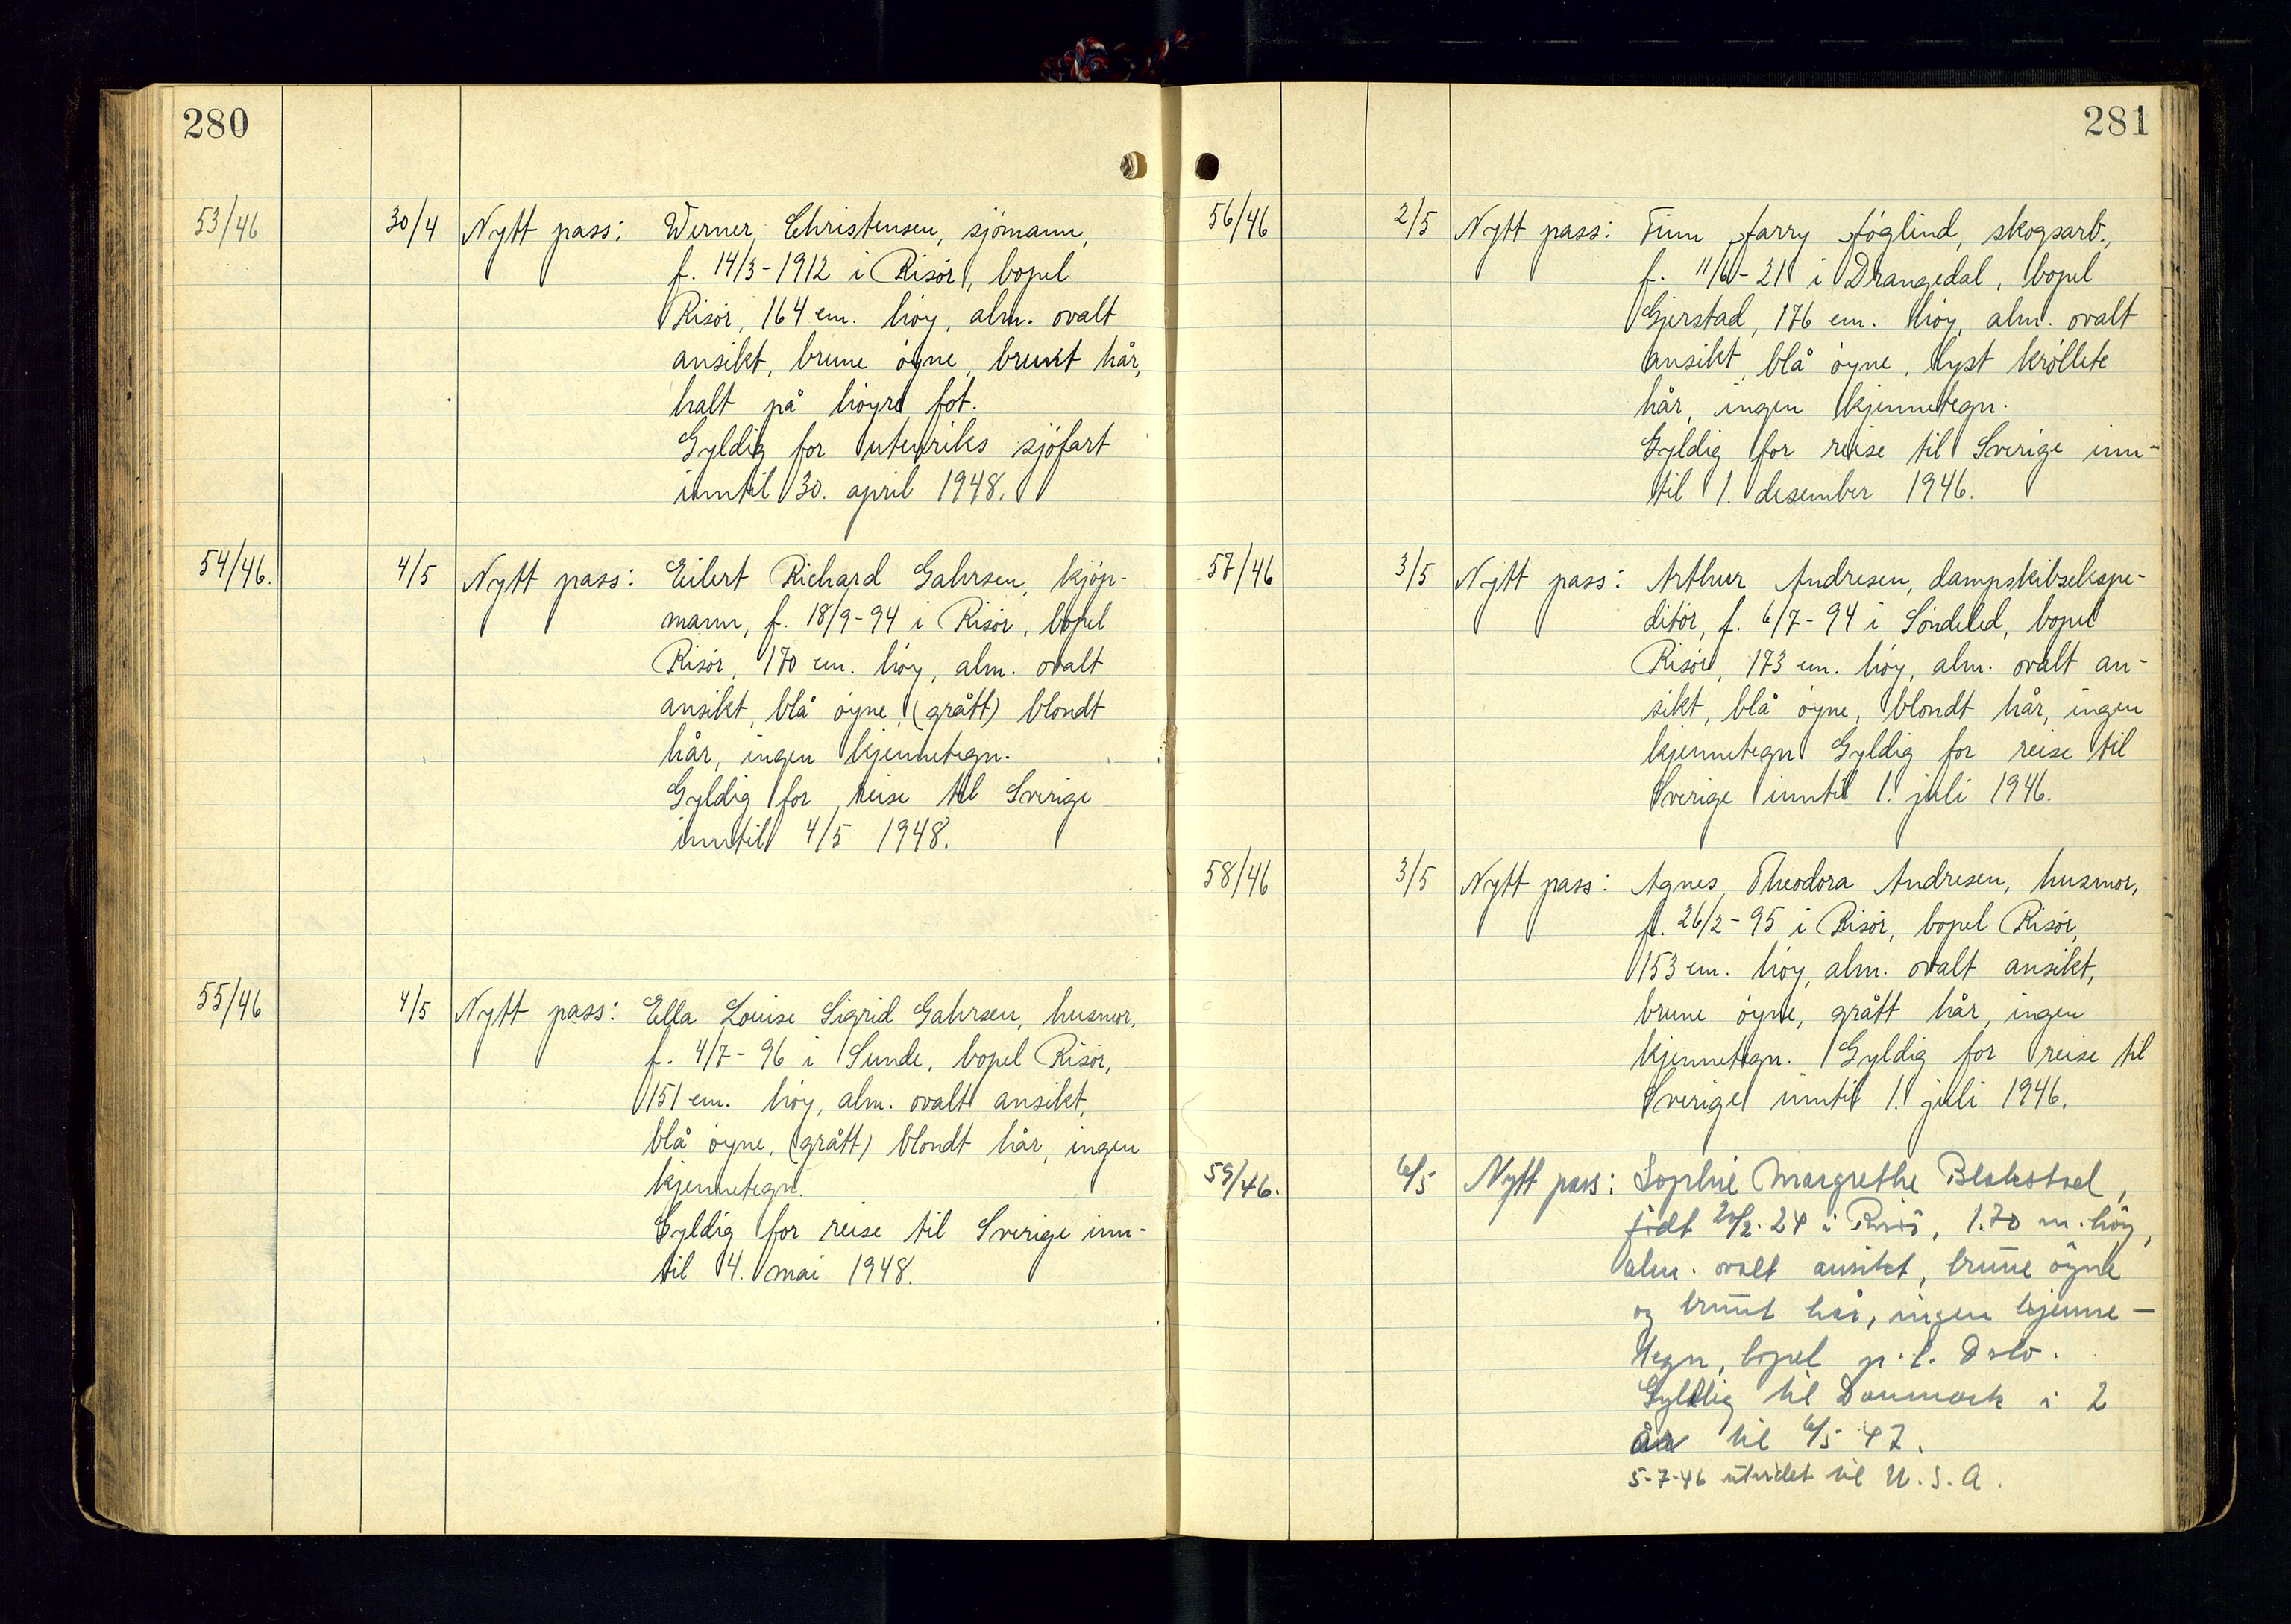 280
53/46 30/4 Nytt pass: Werner Christensen, sjömann,
f. 14/3-1912 i Risör, bopel
Risör, 164 cm. höy, alm. ovalt
ansikt, brune öyne, brunt hår,
halt på höyre fot.
Gyldig for utenriks sjöfart
inntil 30. april 1948.
54/46. 4/5 Nytt pass: Eilert Richard Gahrsen, kjöp-
mann, f. 18/9-94 i Risör, bopel
Risör, 170 cm. höy, alm. ovalt
ansikt, blå öyne, (grått) blondt
hår, ingen kjennetegn.
Gyldig for reise til Sverige
inntil 4/5 1948.
55/46 4/5 Nytt pass: Ella Louise Sigrid Gahrsen, husmor,
f. 4/7-96 i Sunde, bopel Risör,
151 cm. höy, alm. ovalt ansikt,
blå öyne, (grått) blondt hår, ingen
kjennetegn.
Gyldig for reise til Sverige inn-
til 4. mai 1948.
281
56/46 2/5 Nytt pass: Finn Harry Höglind, skogsarb.,
f. 11/6-21 i Drangedal, bopel
Gjerstad, 176 cm. höy, alm. ovalt
ansikt, blå öyne, lyst kröllete
hår, ingen kjennetegn.
Gyldig for reise til Sverige inn-
til 1. desember 1946.
57/46 3/5 Nytt pass: Arthur Andresen, dampskibsekspe-
ditör, f. 6/7-94 i Söndeled, bopel
Risör, 173 cm. höy, alm. ovalt an-
sikt, blå öyne, blondt hår, ingen
kjennetegn Gyldig for reise til
Sverige inntil 1. juli 1946.
58/46 3/5 Nytt pass: Agnes Theodora Andresen, husmor,
f. 26/2-95 i Risör, bopel Risör,
153 cm. höy, alm. ovalt ansikt,
brune öyne, grått hår, ingen
kjennetegn. Gyldig for reise til
Sverige inntil 1. juli 1946.
59/46. 6/5 Nytt pass: Sophie Margrethe Blakstad,
födt 20/2-24 i Risö, 1.70 m. höy,
alm. ovalt ansikt, brune öyne
og brunt hår, ingen kjenne-
tegn, bopel p.t. Oslo.
Gyldig til Danmark i 2
år til 6/5 47.
5-7-46 utvidet til U.S.A.